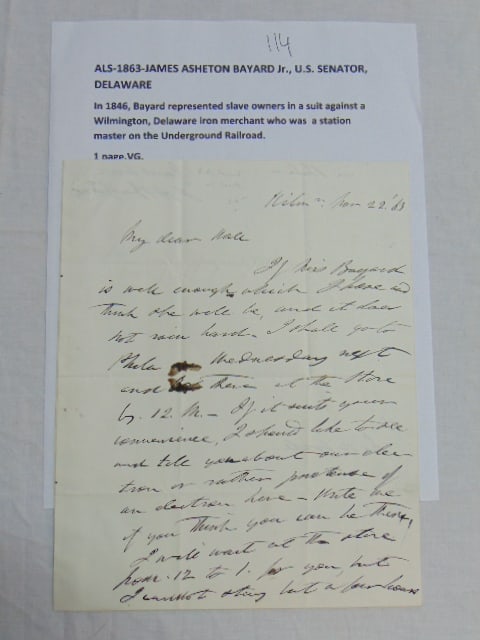 114
ALS-1863-JAMES ASHETON BAYARD Jr., U.S. SENATOR,
DELAWARE
In 1846, Bayard represented slave owners in a suit against a
Wilmington, Delaware iron merchant who was a station
master on the Underground Railroad.
1 page.VG.
Nov 22. '63
My dear
If Mrs Bayard
is well enough, which I
think she will be, and it does
not rain hard - I shall go to
Phila Wednesday next
and there at the store
by. 12. M. - If it suits your
convenience, I should like to see
and tell you about our elec
tion or rather pretense of
an election here - Write me
if you think you can be there,
I will wait at the store
from 12 to 1. for you, but
I cannot stay but a few hours